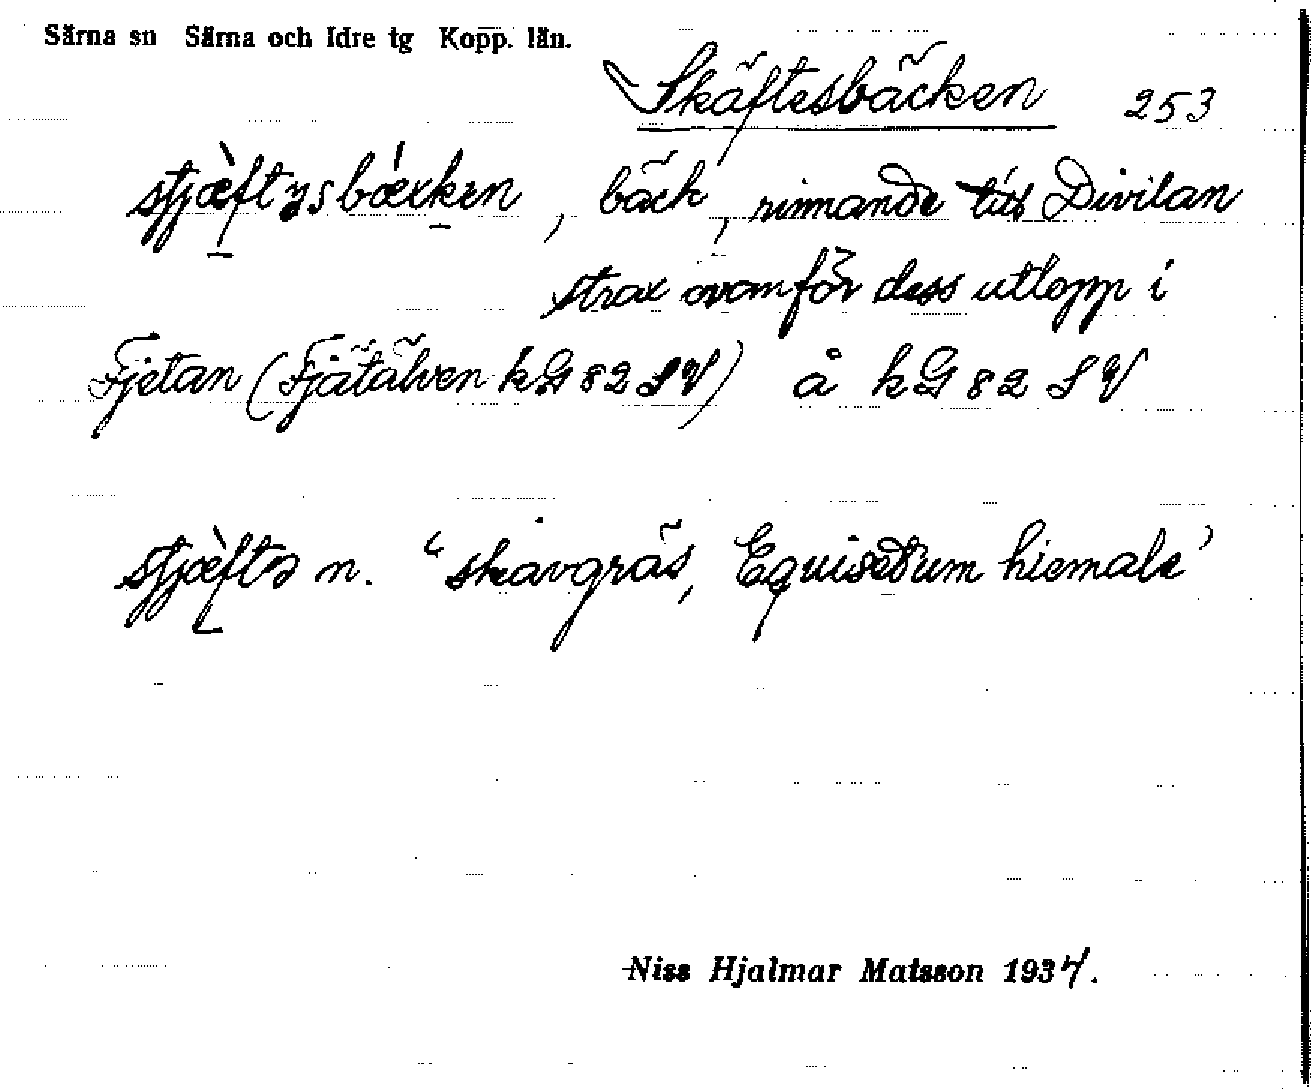 Särna sn Särna och Idre tg Kopp. län.
Skäftesbäcken 253
, bäck, rinnande till Divilan
strax ovanför dess utlopp i
Fjetan (Fjätälven kG 82 SV) å kG 82 SV
n. "skavgräs, Equisetum hiemale"
Niss Hjalmar Matsson 1934.